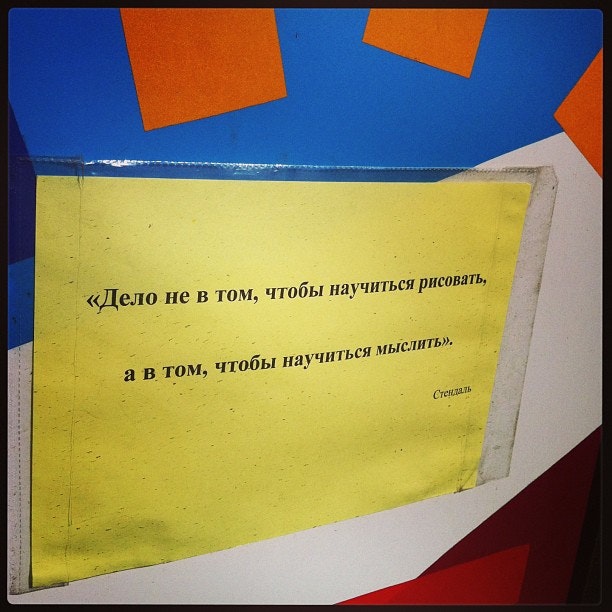 «Дело не в том, чтобы научиться рисовать,
а в том, чтобы научиться мыслить».
Стендаль